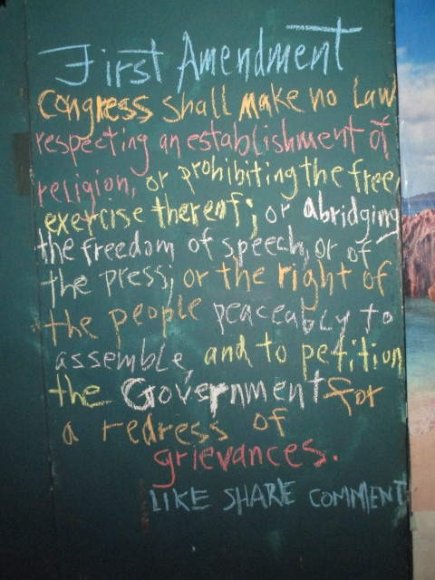 First Amendment
Congress shall make no law
respecting an establishment of
religion, or prohibiting the free
exercise thereof; or abridging
the freedom of speech, or of
the press; or the right of
the people peaceably to
assemble, and to petition
the Government for
a redress of
grievances.
LIKE SHARE COMMENT